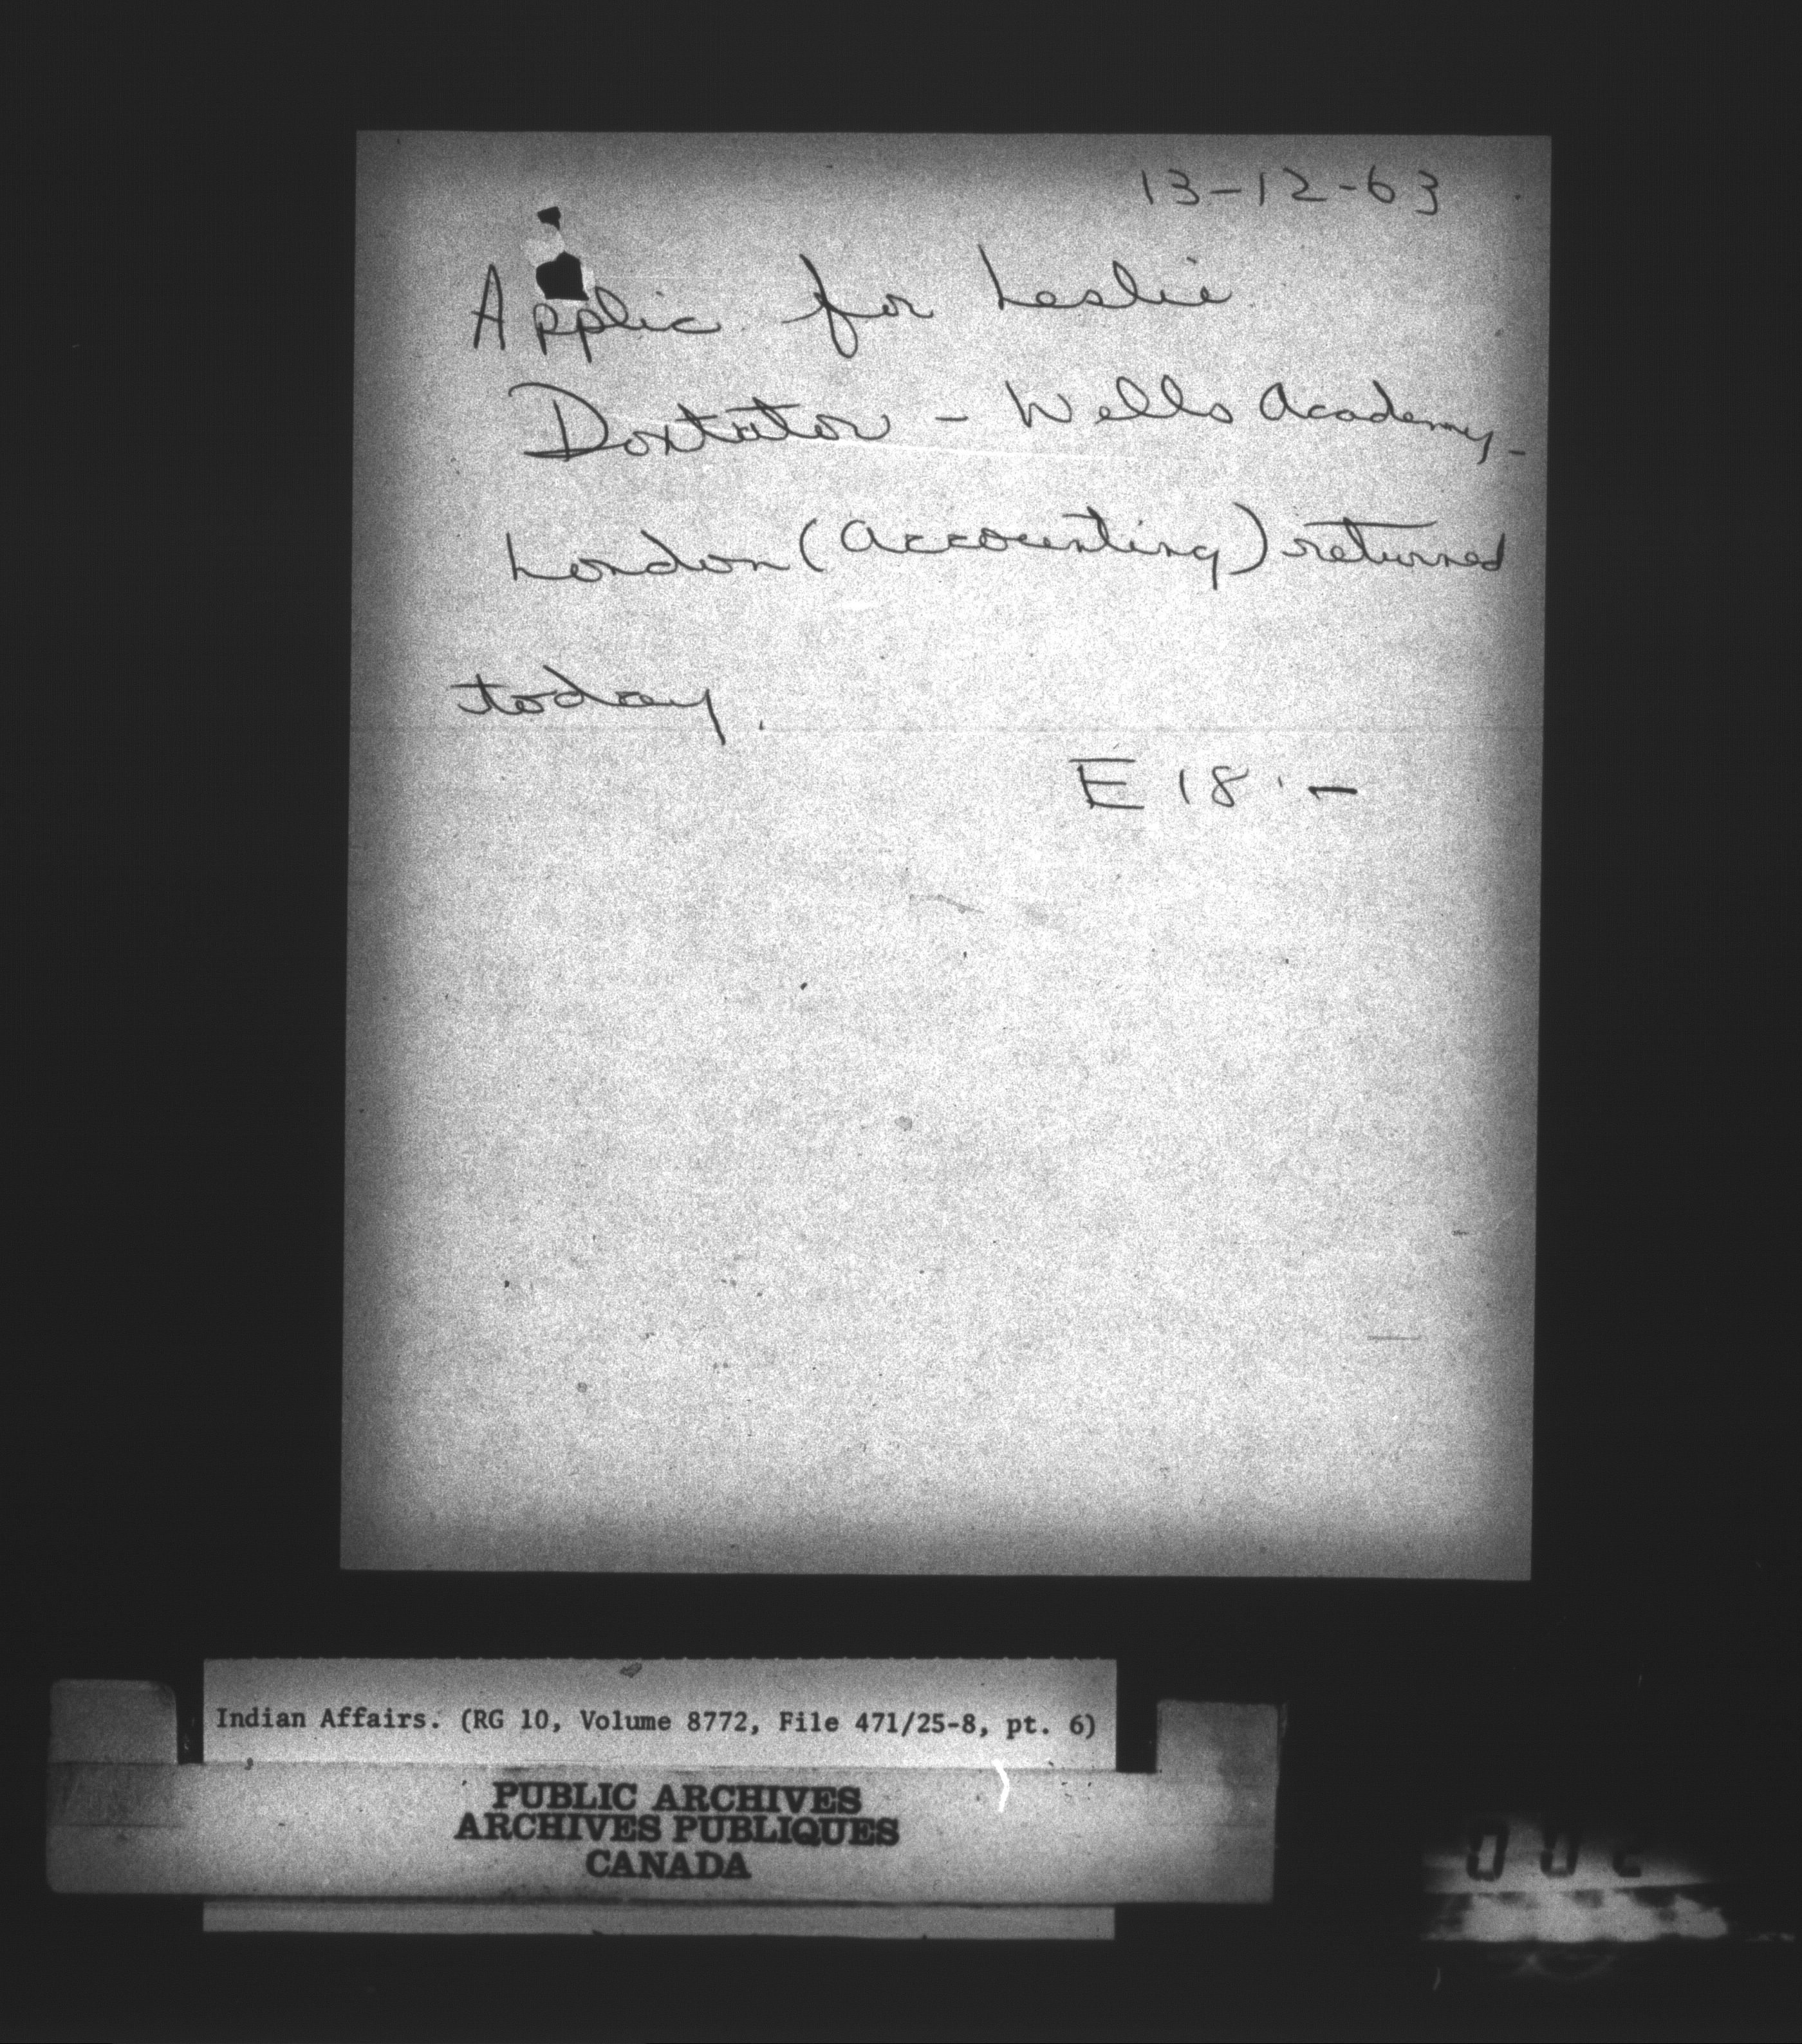 13-12-63
Applic. for Leslie
Doxtator - Wells Academy -
London (Accounting) returned
today.
E 18 . -
Indian Affairs. (RG 10, Volume 8772, File 471/25-8, pt. 6)
PUBLIC ARCHIVES
ARCHIVES PUBLIQUES
CANADA